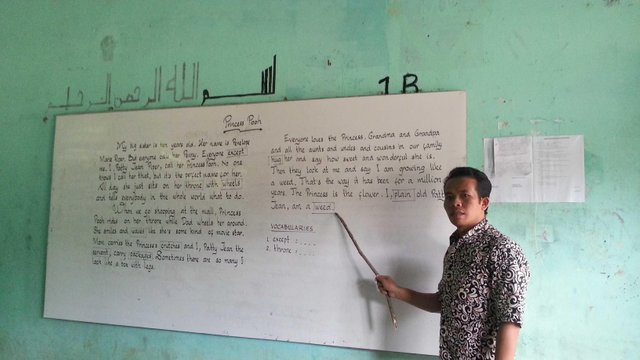 بسم الله الرحمن الرحيم
1B
Princess Pooh
My big sister is ten years old. Her name is Penelope
Marie Piper. But everyone call her Penny. Everyone except
me. I, Patty Jean Piper, call her Princess Pooh. No one
knows I call her that, but it's the perfect name for her.
All day she just sits on her throne with wheels
and tells everybody in the whole world what to do.
When we go shopping at the mall, Princess
Pooh rides on her throne while Dad wheels her around.
She smiles and waves like she's some kind of movie star.
Mom carries the Princess's crutches and I, Patty Jean the
servant, carry packages. Sometimes there are so many I
look like a box with legs.
Everyone loves the Princess. Grandma and Grandpa
and all the aunts and uncles and cousins in our family
hug her and say how sweet and wonderful she is.
Then they look at me and say I am growing like
a weed. That's the way it has been for a million
years. The Princess is the flower. I, plain old Patty
Jean, am a weed.
VOCABULARIES
1. except : ....
2. throne : ....